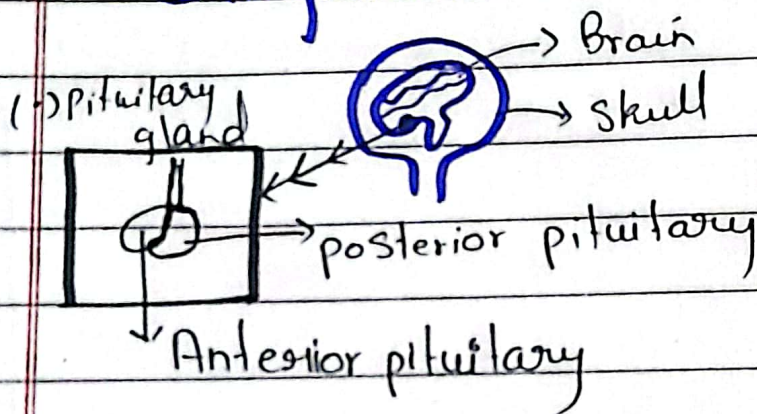 Brain
Skull
(-) Pituitary
gland
posterior pituitary
Anterior pituitary